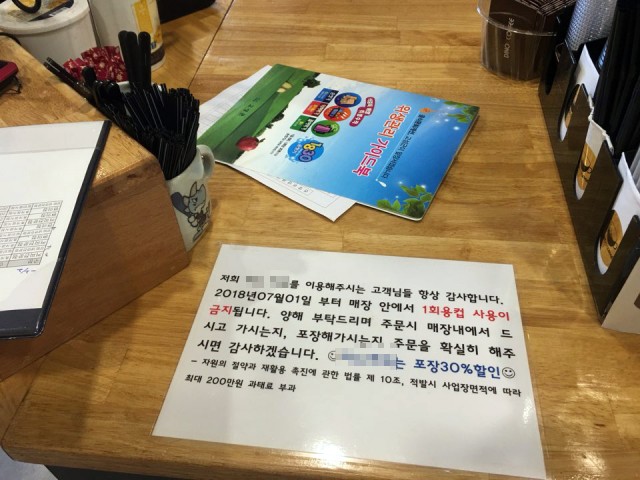 위생관리 가이드북
1830
저희 를 이용해주시는 고객님들 항상 감사합니다.
2018년07월01일 부터 매장 안에서 1회용컵 사용이
금지됩니다. 양해 부탁드리며 주문시 매장내에서 드
시고 가시는지, 포장해가시는지 주문을 확실히 해주
시면 감사하겠습니다. 는 포장30%할인
- 자원의 절약과 재활용 촉진에 관한 법률 제 10조, 적발시 사업장면적에 따라
최대 200만원 과태료 부과